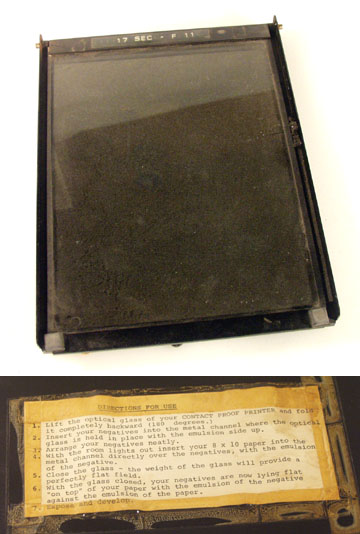 17 SEC - F 11
DIRECTIONS FOR USE
1. Lift the optical glass of your CONTACT PROOF PRINTER and fold
it completely backward (180 degrees.)
2. Insert your negatives into the metal channel where the optical
glass is held in place with the emulsion side up.
3. Arrange your negatives neatly.
4. With the room lights out insert your 8 x 10 paper into the
metal channel directly over the negatives; with the emulsion
of the negative.
5. Close the glass - the weight of the glass will provide a
perfectly flat field.
6. With the glass closed, your negatives are now lying flat
"on top" of your paper with the emulsion of the negative
against the emulsion of the paper.
Expose and develop.